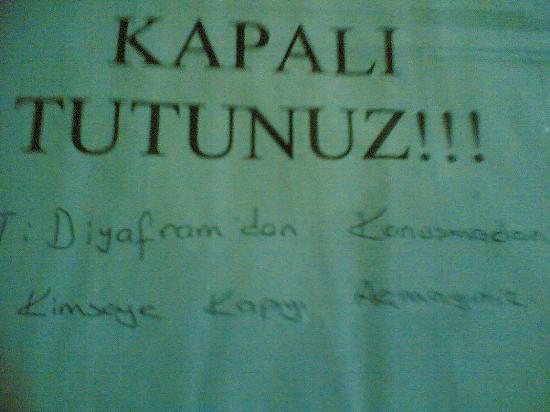 KAPALI
TUTUNUZ!!!
T: Diyafram'dan Konusmadan
Kimseye Kapıyı Açmayınız